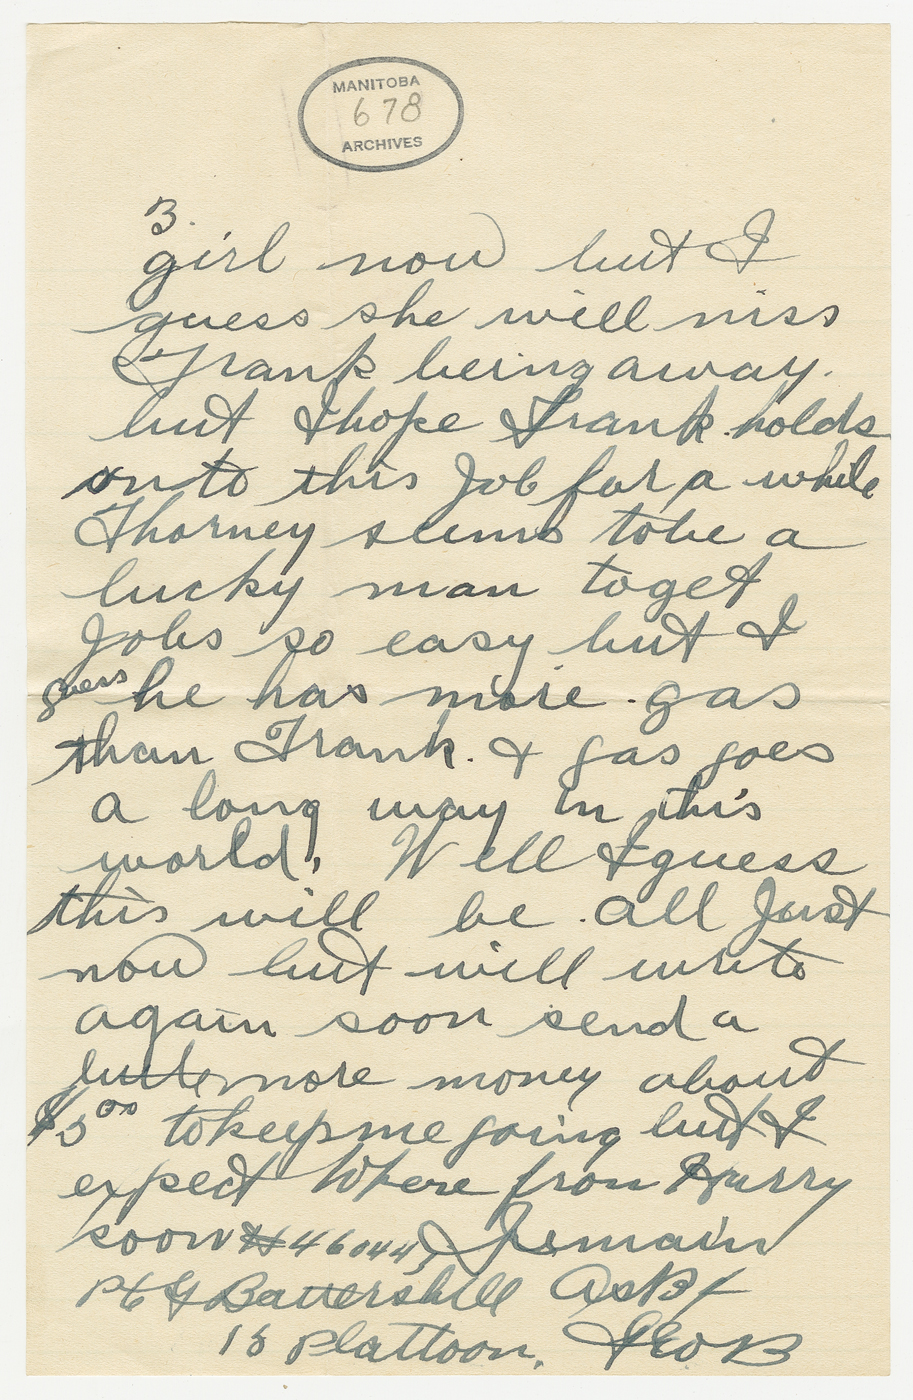 MANITOBA
678
ARCHIVES
3.
girl now but I
guess she will miss
Frank being away.
but I hope Frank holds
on to this Job for a while
Thorney seems tobe a
lucky man toget
Jobs so easy but I
guess he has more gas
than Frank. & gas goes
a long way in this
world. Well I guess
this will be all Just
now but will write
again soon send a
little more money about
$5.00 tokeep me going but I
expect to here from Harry
soon # 460445 I remain
Pt G Battershill
15 Plattoon. Geo B